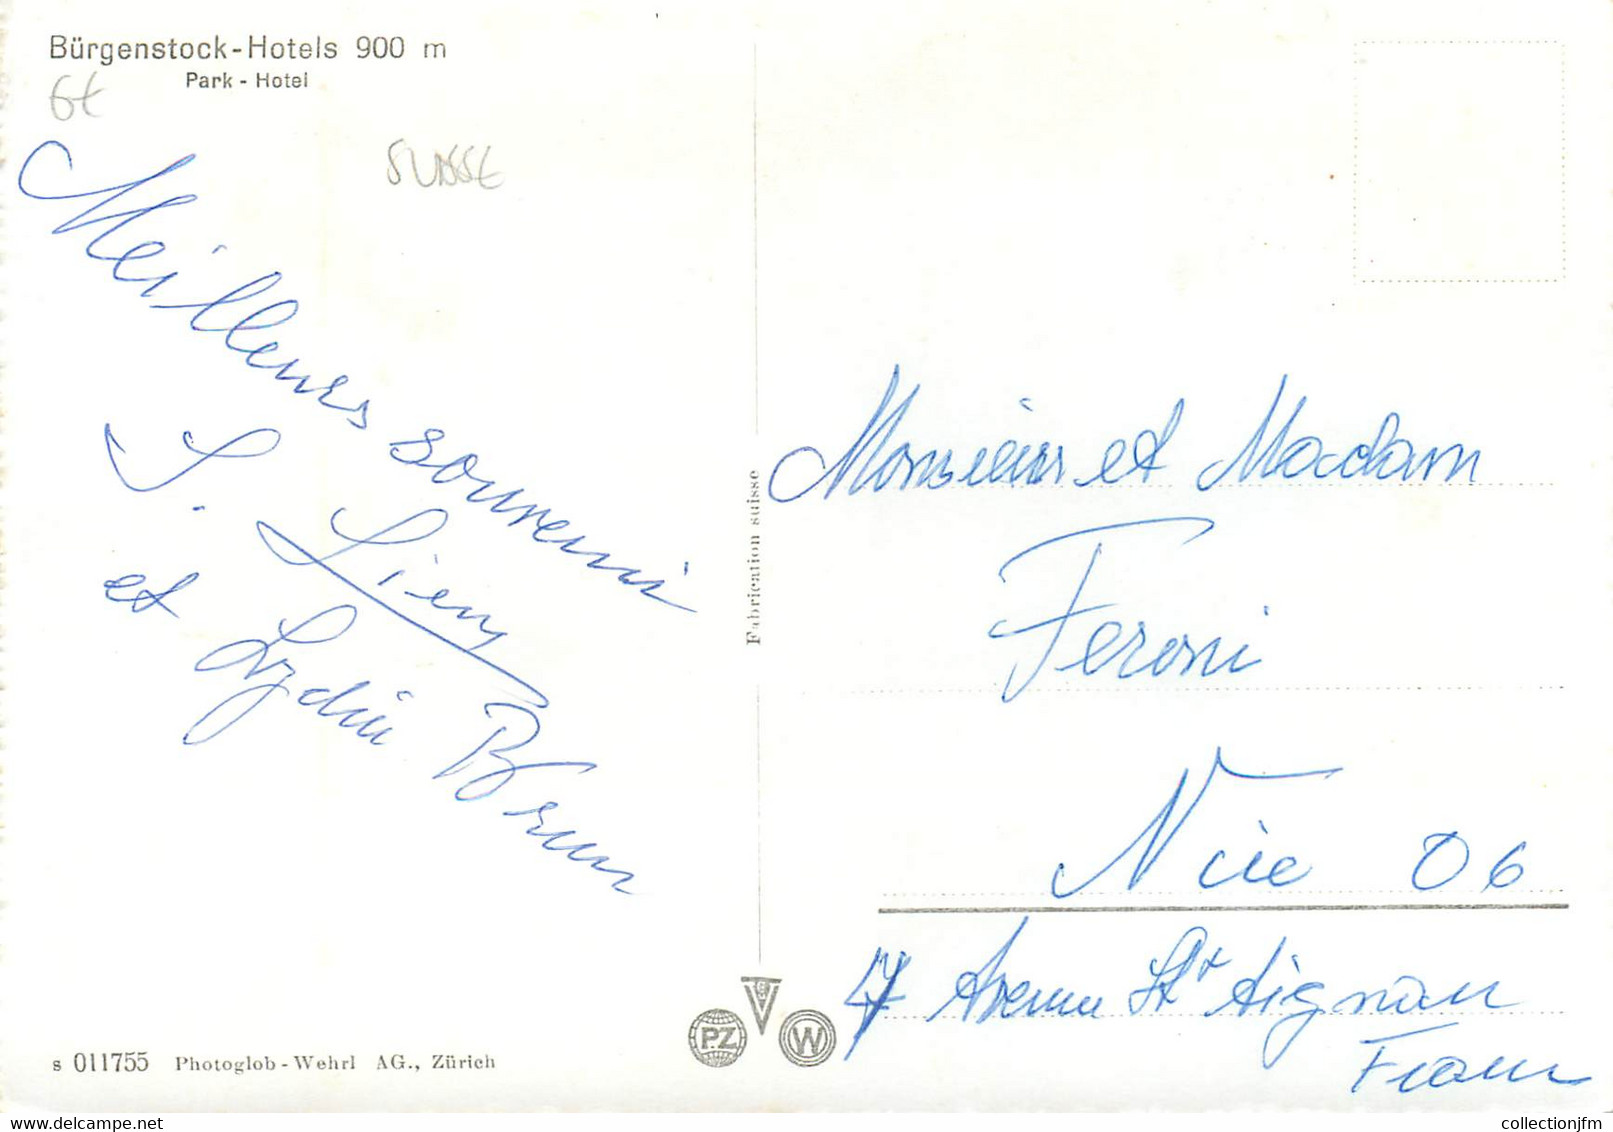 Bürgenstock-Hotels 900 m
Park - Hotel
6€
SUISSE
Meilleurs souvenir
S. Lieny
et Lydia Brun
Fabrication suisse
Monsieur et Madam
Feroni
Nice 06
7 Avenue St Aignan
France
PZ
W
s 011755 Photoglob-Wehrl AG., Zürich
collectionjfm